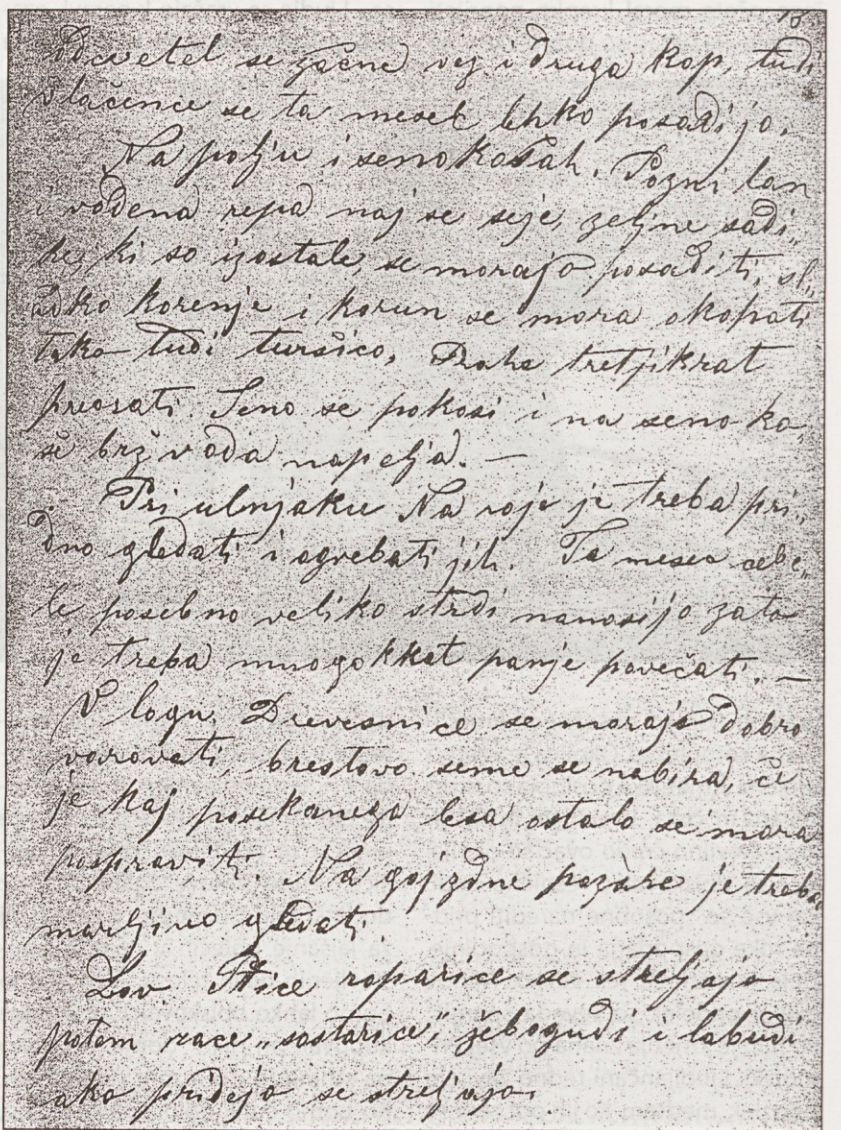 odcvetel se začne vež i druga kop, tudi
vlačence se ta mesec lehko posadijo.
Na polju i senokošah. Pozni lan
i vodena repa naj se seje, zeljne sadi„
ke, ki so izostale, se morajo posaditi, sl„
adko korenje i korun se mora okopati
tako tudi turšico, Praha tretjikrat
preorati. Seno se pokosi i na senoko„
še brž voda napelja. —
Pri ulnjaku Na roje je treba pri„
dno gledati i ogrebati jih. Ta mesec čebe„
le posebno veliko strdi nanosijo zato
je treba mnogokkat panje povečati. —
V logu. Drevesnice se morajo dobro
varovati, brestovo seme se nabira, če
je kaj posekanega lesa ostalo se mora
pospraviti. Na gojzdne pazare je treba
marljivo gledati.
Lov. Ptice roparice se streljajo
potem race „sostarice", i labudi
ako pridejo se streljajo.